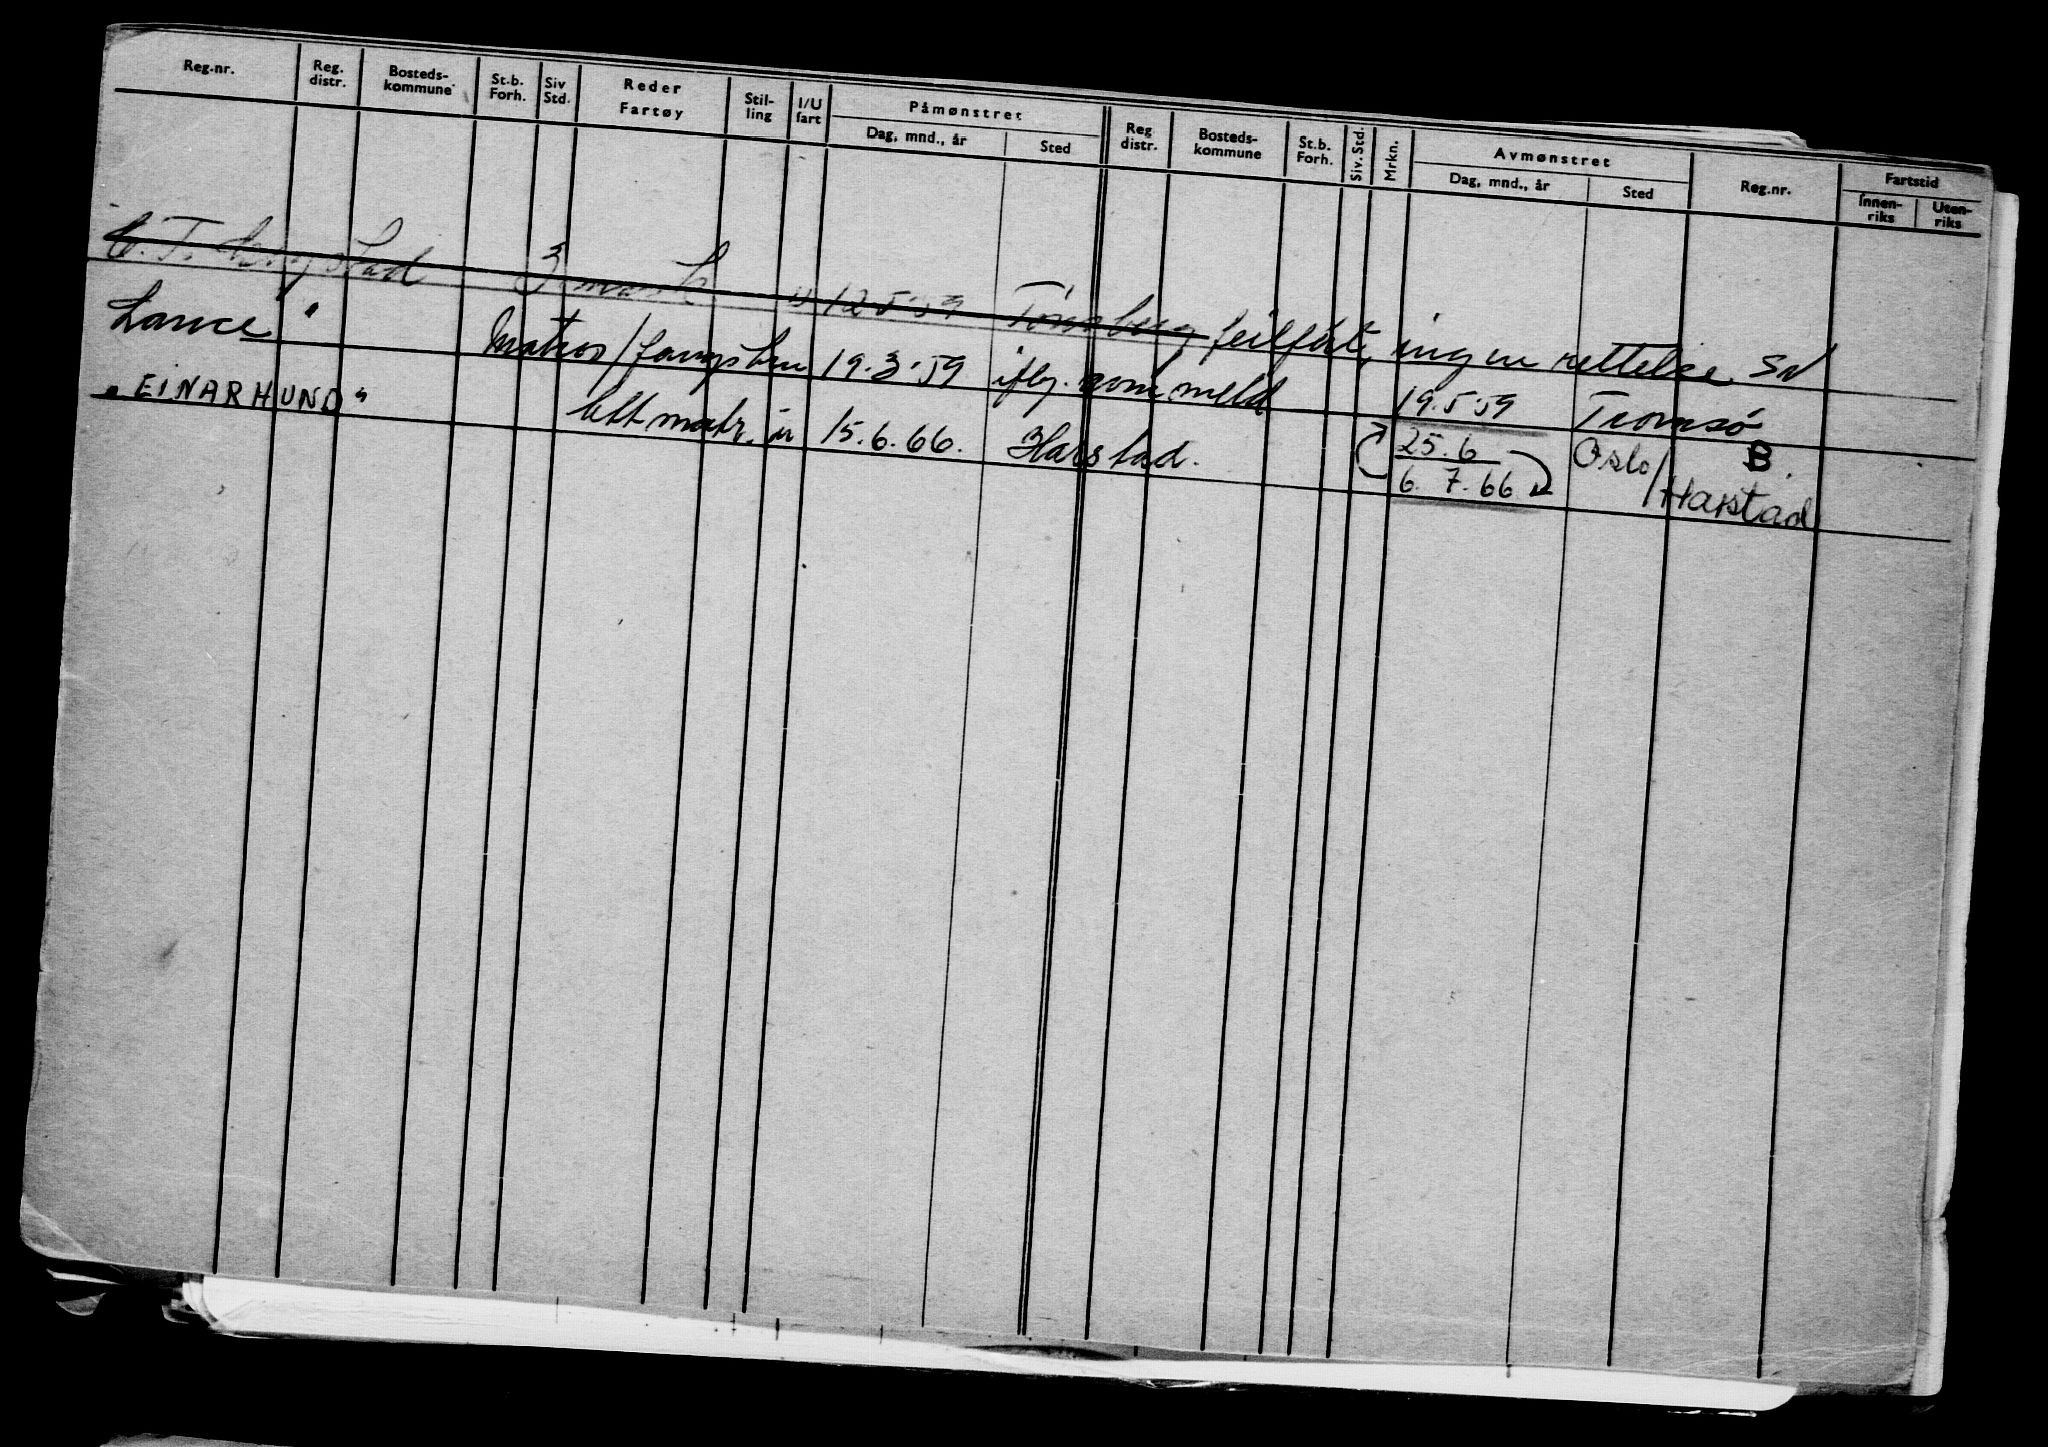 Reg.nr. Reg. distr. Bosteds-kommune St.b. Forh. Siv Std. Reder Fartøy Stil-ling I/U fart Påmønstret Dag, mnd., år Sted Reg distr. Bosteds-kommune St.b. Forh. Siv. Std. Mrkn. Avmønstret Dag, mnd., år Sted Reg.nr. Fartstid Innen-riks Uten-riks
12.5.59 Tönsberg feilført, ingen rettelse
Lance " Matros/fangstm 19.3.59 iflg. rom meld 19.5.59 Tromsø
"EINARHUND" lett matr. u 15.6.66. Harstad. 25.6 Oslo/ B.
6.7.66 Harstad